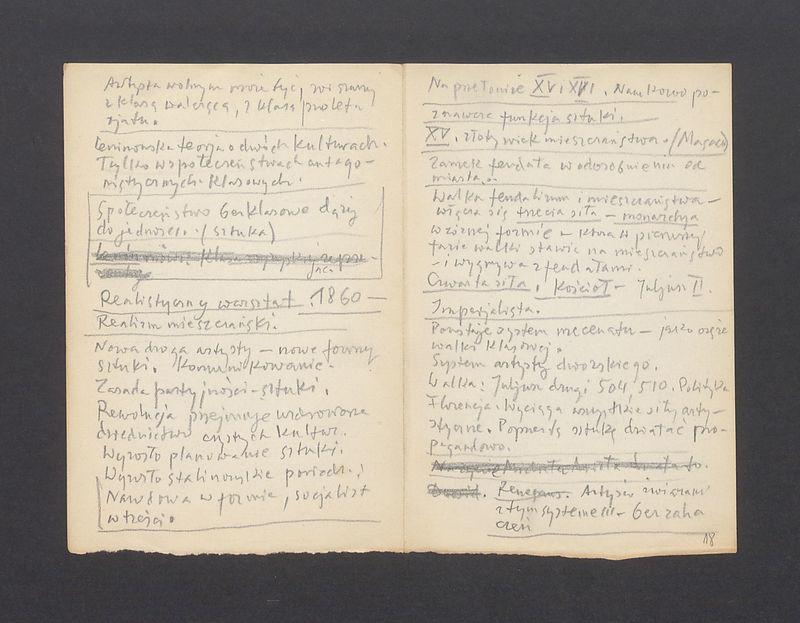 Artysta wolnym może być, związany
z klasą walczącą, z klasą proleta
rjatu.
Leninowska teorja o dwóch kulturach.
Tylko w społeczeństwach antago-
nistycznych-klasowych.
Społeczeństwo bezklasowe dąży
do jedności. (sztuka)
Realistyczny warsztat. 1860 —
Realizm mieszczański.
Nowa droga artysty — nowe formy
sztuki. Komunikowanie.
Zasada partyjności-sztuki.
Rewolucja przejmuje
dziedzictwo kultur.
Wyrosło planowanie sztuki.
Wyrosło stalinowskie powiedz.:
Narodowa w formie, socjalist
w treści.
Na przełomie XV i XVI. Naukowo po-
znawcza funkcja sztuki.
XV. złoty wiek mieszczaństwa. (Masaccio)
Zamek feudała w odosobnieniu od
miasta.
Walka feudalizmu i mieszczaństwa —
włącza się trzecia siła — monarchja
w różnej formie — która w pierwszej
fazie walki stawia na mieszczaństwo
— i wygrywa z feudałami.
Czwarta siła, Kościół — Juljusz II.
Imperjalista.
Powstaje system mecenatu — jako oręże
walki klasowej.
System artysty dworskiego.
Walka: Juljusz drugi 504, 510. Polityka
Florencja. Wyciąga wszystkie siły arty-
styczne. Poprzez sztukę działać pro-
pagandowo.
Renesans. Artyści związani
z tym systemem — bez zaha
czeń
18